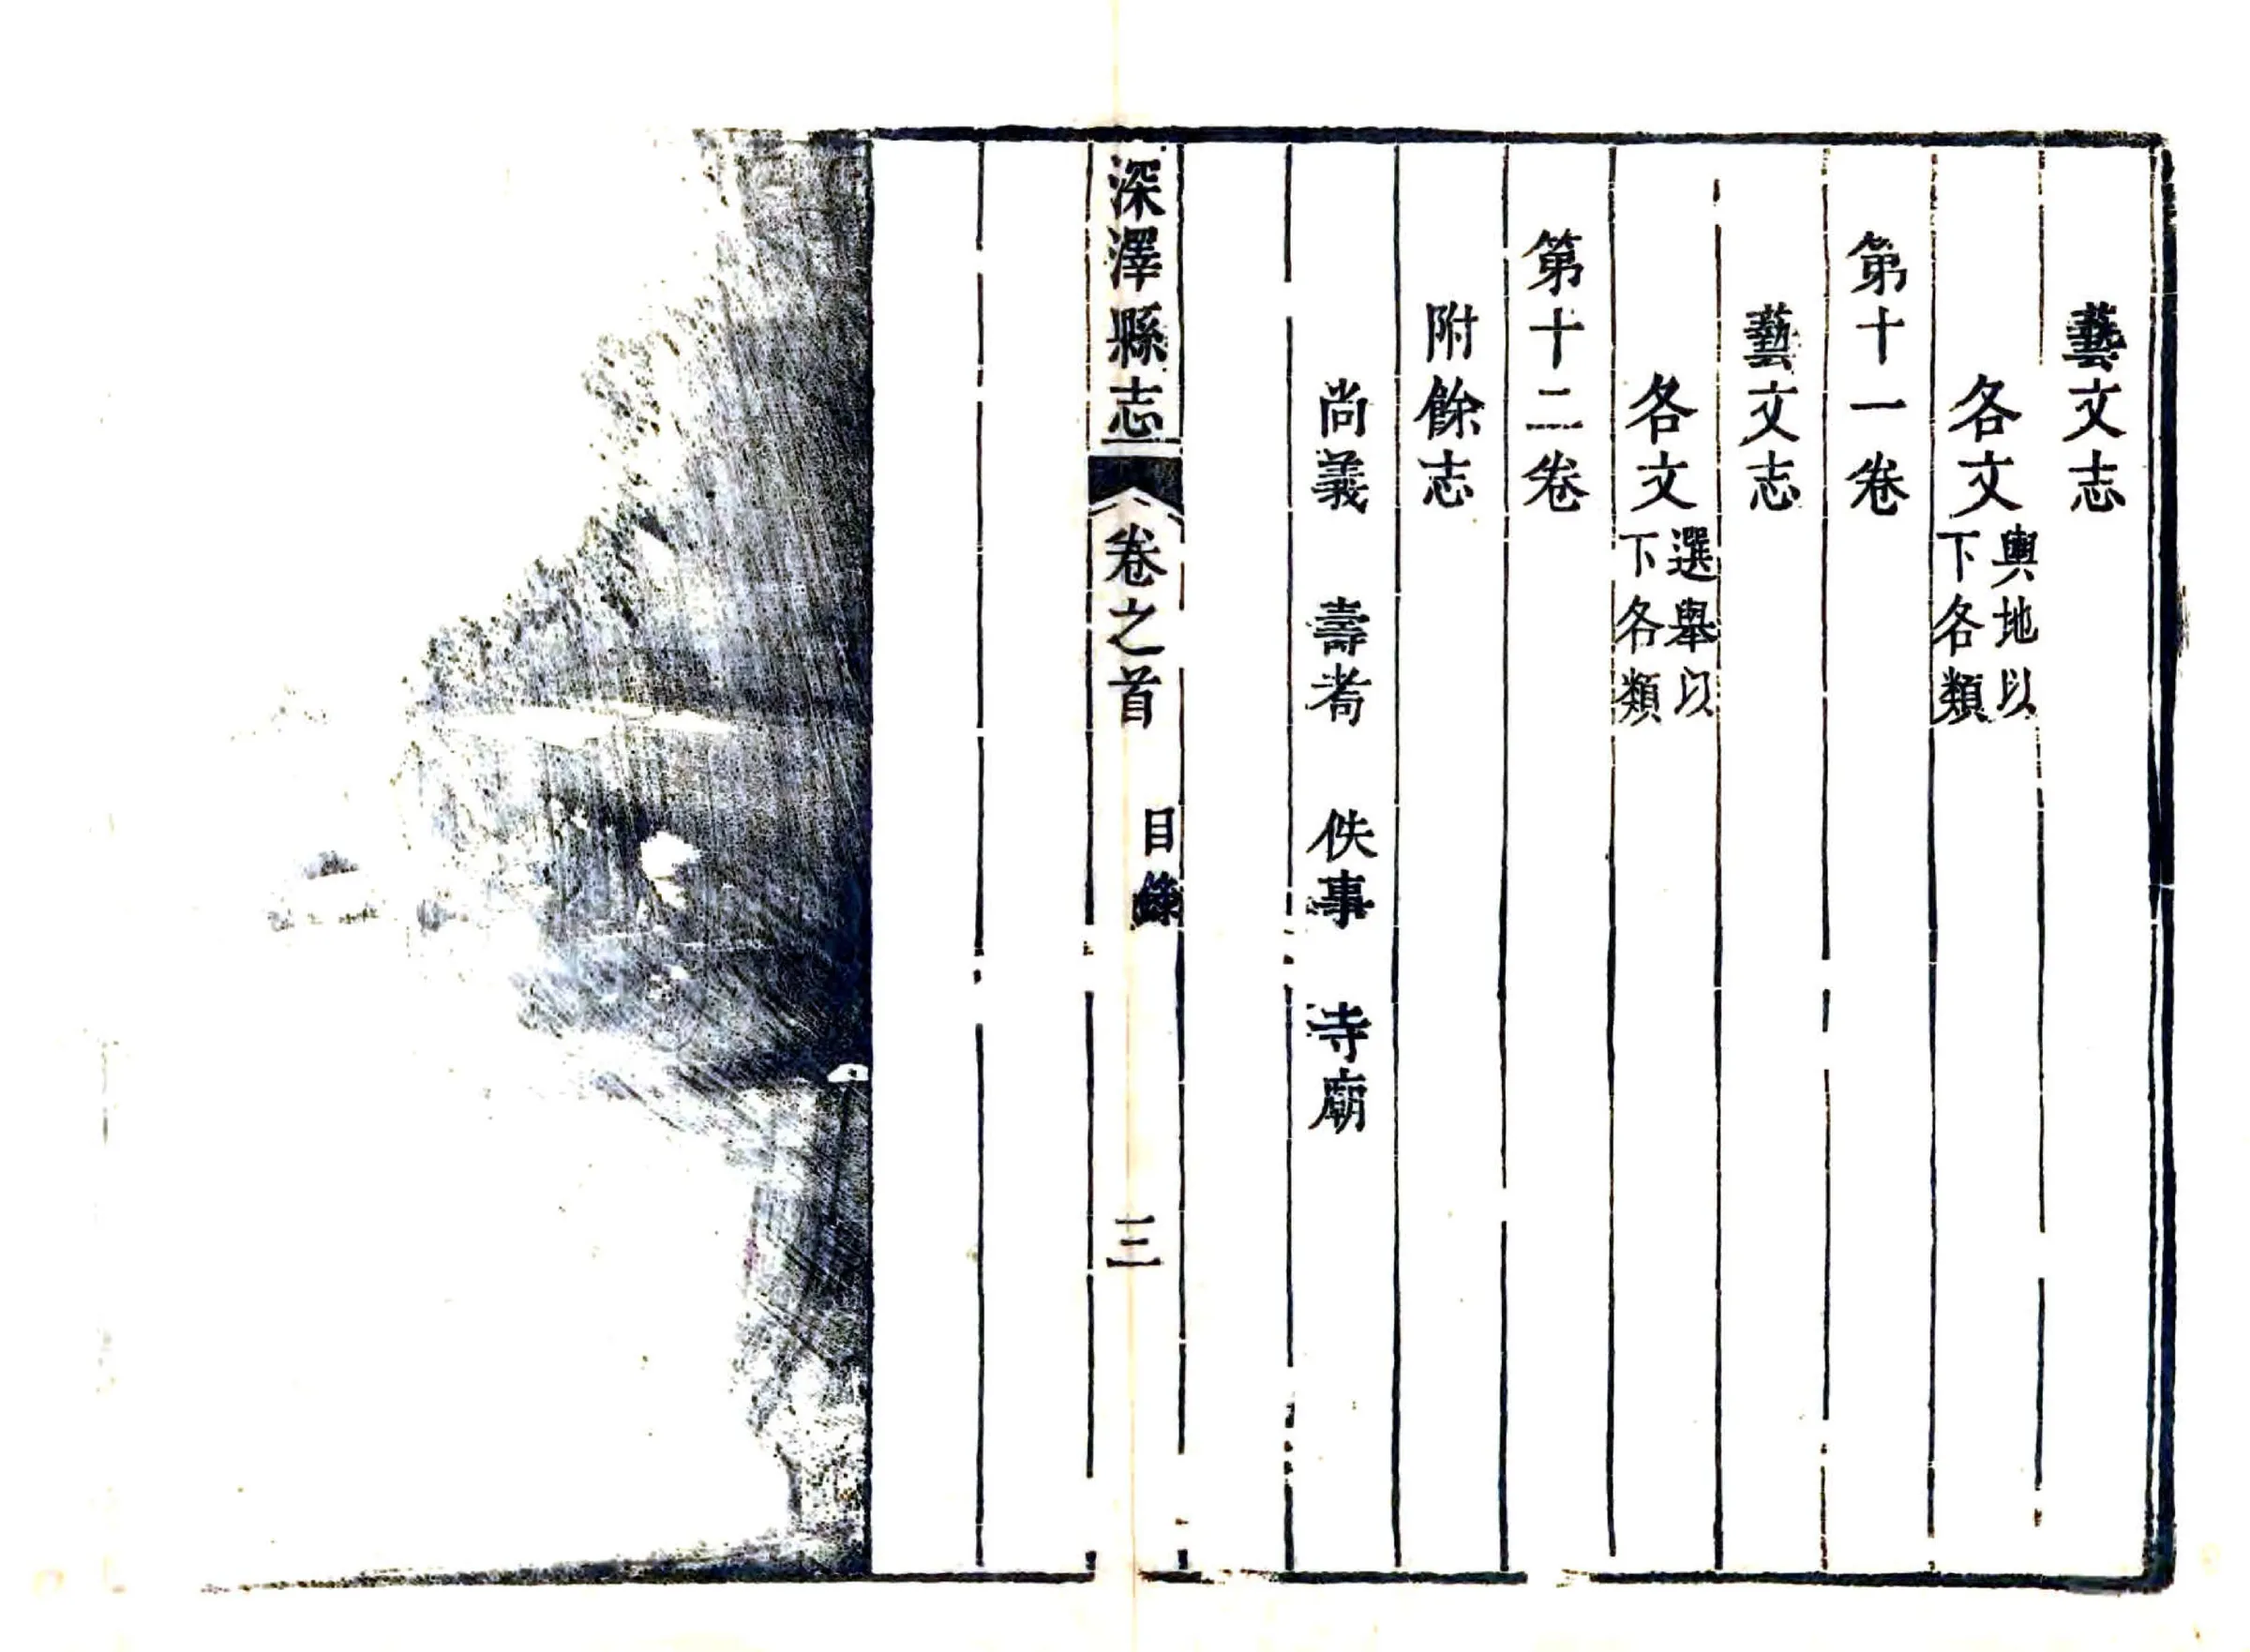 藝文志
各文輿地以下各類
第十一卷
藝文志
各文選舉以下各類
第十二卷
附餘志
尚義　壽耇　佚事　寺廟
深澤縣志　卷之首　目錄　三